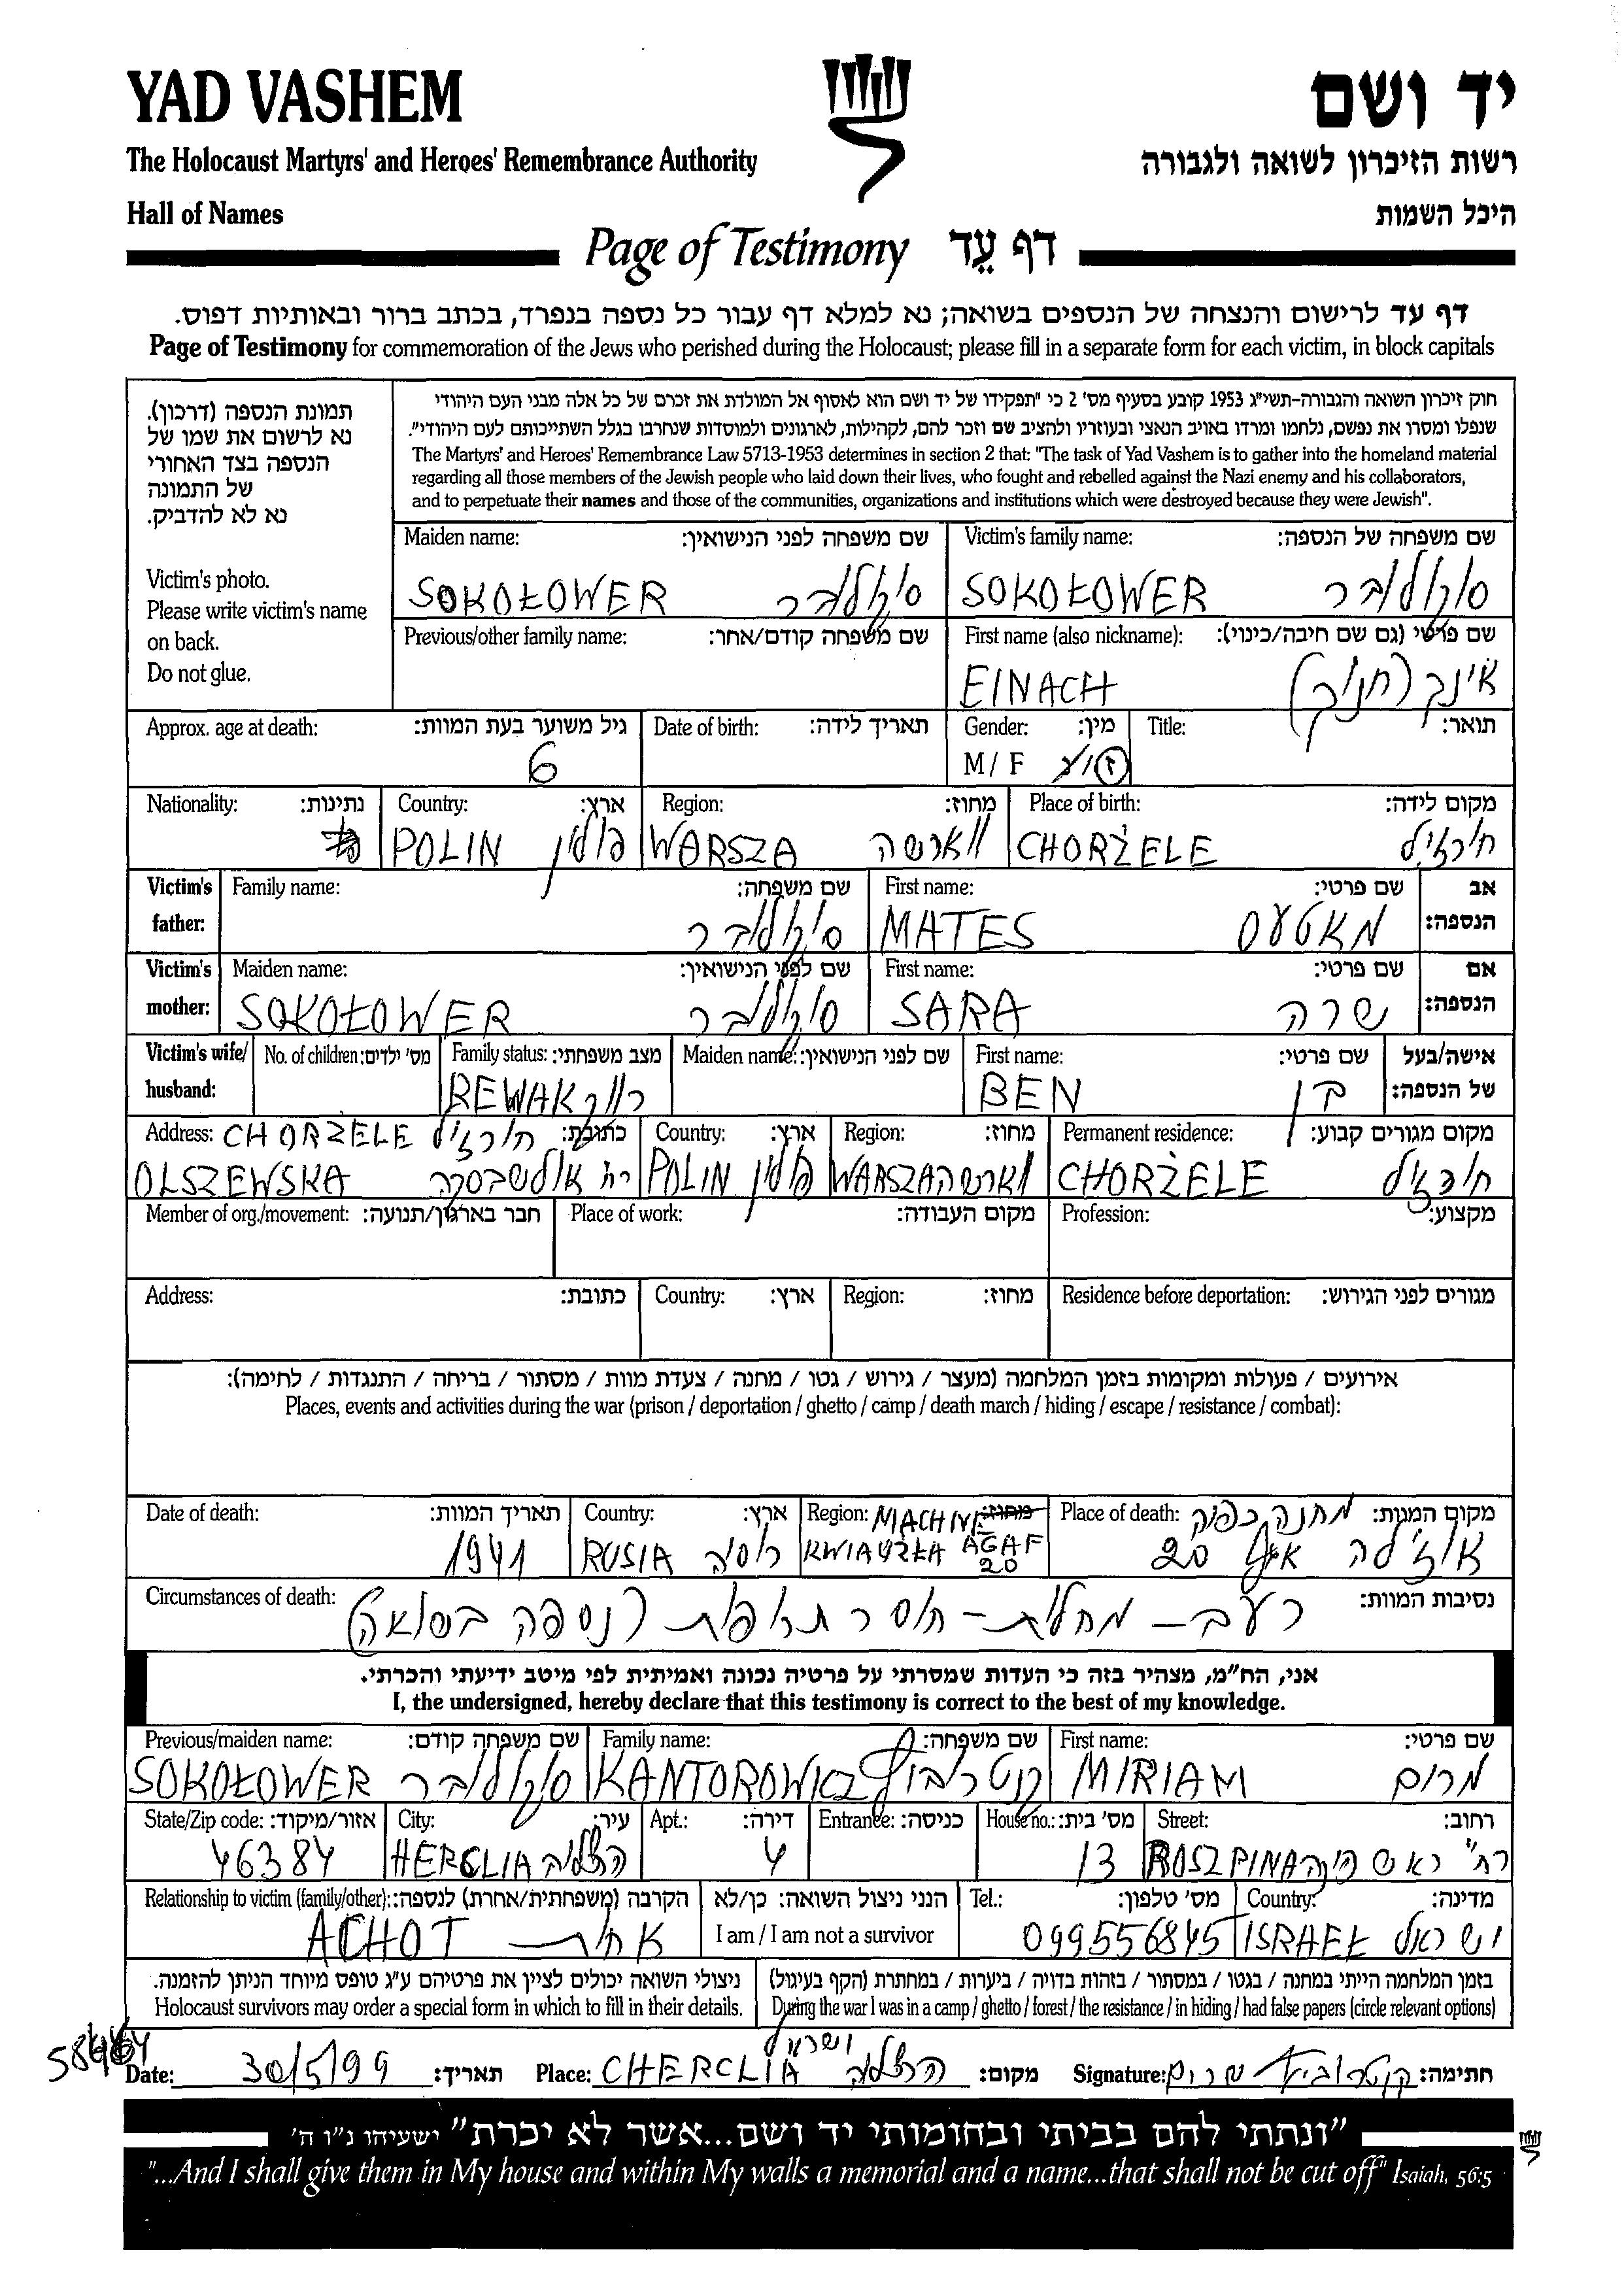 YAD VASHEM
יד ושם
The Holocaust Martyrs' and Heroes' Remembrance Authority
רשות הזיכרון לשואה ולגבורה
Hall of Names
היכל השמות
Page of Testimony דף עֵד
דף עד לרישום והנצחה של הנספים בשואה; נא למלא דף עבור כל נספה בנפרד, בכתב ברור ובאותיות דפוס.
Page of Testimony for commemoration of the Jews who perished during the Holocaust; please fill in a separate form for each victim, in block capitals
תמונת הנספה (דרכון).
נא לרשום את שמו של
הנספה בצד האחורי
של התמונה
נא לא להדביק.
Victim's photo.
Please write victim's name
on back.
Do not glue.
חוק זיכרון השואה והגבורה-תשי"ג 1953 קובע בסעיף מס' 2 כי "תפקידו של יד ושם הוא לאסוף אל המולדת את זכרם של כל אלה מבני העם היהודי
שנפלו ומסרו את נפשם, נלחמו ומרדו באויב הנאצי ובעוזריו ולהציב שם וזכר להם, לקהילות, לארגונים ולמוסדות שנחרבו בגלל השתייכותם לעם היהודי".
The Martyrs' and Heroes' Remembrance Law 5713-1953 determines in section 2 that: "The task of Yad Vashem is to gather into the homeland material
regarding all those members of the Jewish people who laid down their lives, who fought and rebelled against the Nazi enemy and his collaborators,
and to perpetuate their names and those of the communities, organizations and institutions which were destroyed because they were Jewish".
Maiden name: שם משפחה לפני הנישואין: Victim's family name: שם משפחה של הנספה:
SOKOŁOWER סוקולובר SOKOŁOWER סוקולובר
Previous/other family name: שם משפחה קודם/אחר: First name (also nickname): שם פרטי (גם שם חיבה/כינוי):
EINACH אינך (חנוך)
Approx. age at death: גיל משוער בעת המוות: Date of birth: תאריך לידה: Gender: מין: Title: תואר:
6 M / F ז / נ
Nationality: נתינות: Country: ארץ: Region: מחוז: Place of birth: מקום לידה:
POLIN פולין WARSZA ווארשה CHORŻELE חורזיל
Victim's father: Family name: שם משפחה: First name: שם פרטי: אב הנספה:
סוקולובר MATES מאטעס
Victim's mother: Maiden name: שם לפני הנישואין: First name: שם פרטי: אם הנספה:
SOKOŁOWER סוקולובר SARA שרה
Victim's wife/ husband: No. of children: מס' ילדים: Family status: מצב משפחתי: Maiden name: שם לפני הנישואין: First name: שם פרטי: אישה/בעל של הנספה:
REWAK רווק BEN בן
Address: CHORZELE חורזיל כתובת: Country: ארץ: Region: מחוז: Permanent residence: מקום מגורים קבוע:
OLSZEWSKA רח אולשבסקה POLIN פולין WARSZA ווארשה CHORŻELE חורזיל
Member of org./movement: חבר בארגון/תנועה: Place of work: מקום העבודה: Profession: מקצוע:
Address: כתובת: Country: ארץ: Region: מחוז: Residence before deportation: מגורים לפני הגירוש:
אירועים / פעולות ומקומות בזמן המלחמה (מעצר / גירוש / גטו / מחנה / צעדת מוות / מסתור / בריחה / התנגדות / לחימה):
Places, events and activities during the war (prison / deportation / ghetto / camp / death march / hiding / escape / resistance / combat):
Date of death: תאריך המוות: Country: ארץ: Region: MACHNE מחוז: Place of death: מחנה כפיה מקום המוות:
1941 RUSIA רוסיה AGAF 20 אגף 20
Circumstances of death: נסיבות המוות:
רעב - מחלות - חוסר תרופות (נספה בשואה)
אני, הח"מ, מצהיר בזה כי העדות שמסרתי על פרטיה נכונה ואמיתית לפי מיטב ידיעתי והכרתי.
I, the undersigned, hereby declare that this testimony is correct to the best of my knowledge.
Previous/maiden name: שם משפחה קודם: Family name: שם משפחה: First name: שם פרטי:
SOKOŁOWER סוקולובר KANTOROWICZ קנטרוביץ MIRIAM מרים
State/Zip code: אזור/מיקוד: City: עיר: Apt.: דירה: Entrance: כניסה: House no.: מס' בית: Street: רחוב:
46384 HERCLIA הרצליה 4 13 ROSZPINA רח' ראש פינה
Relationship to victim (family/other): הקרבה (משפחתית/אחרת) לנספה: הנני ניצול השואה: כן/לא Tel.: מס' טלפון: Country: מדינה:
ACHOT אחות I am / I am not a survivor 099556845 ISRAEŁ ישראל
ניצולי השואה יכולים לציין את פרטיהם ע"ג טופס מיוחד הניתן להזמנה. בזמן המלחמה הייתי במחנה / בגטו / במסתור / בזהות בדויה / ביערות / במחתרת (הקף בעיגול)
Holocaust survivors may order a special form in which to fill in their details. During the war I was in a camp / ghetto / forest / the resistance / in hiding / had false papers (circle relevant options)
ישראל
Date: 30/5/99 תאריך: Place: CHERCLIA הרצליה מקום: Signature: קנטרוביץ מרים חתימה:
"ונתתי להם בביתי ובחומותי יד ושם...אשר לא יכרת" ישעיהו נ"ו ה'
"...And I shall give them in My house and within My walls a memorial and a name...that shall not be cut off" Isaiah, 56:5